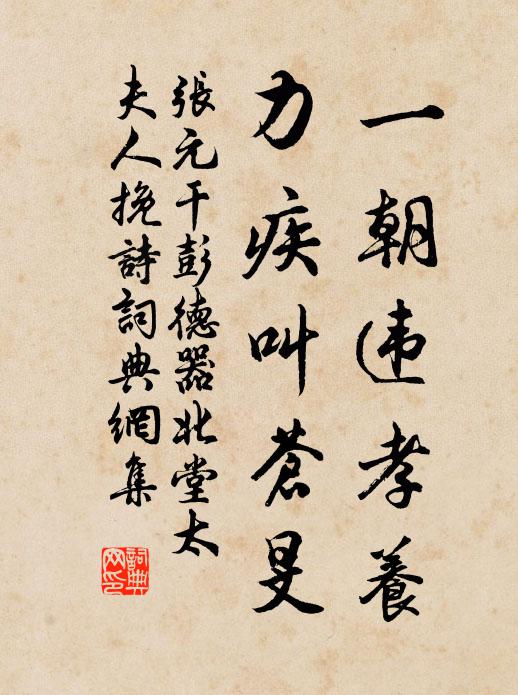 一朝违孝養
力疾叫蒼旻
張元干彭德器北堂太
夫人挽詩詞典網集
詞典网印